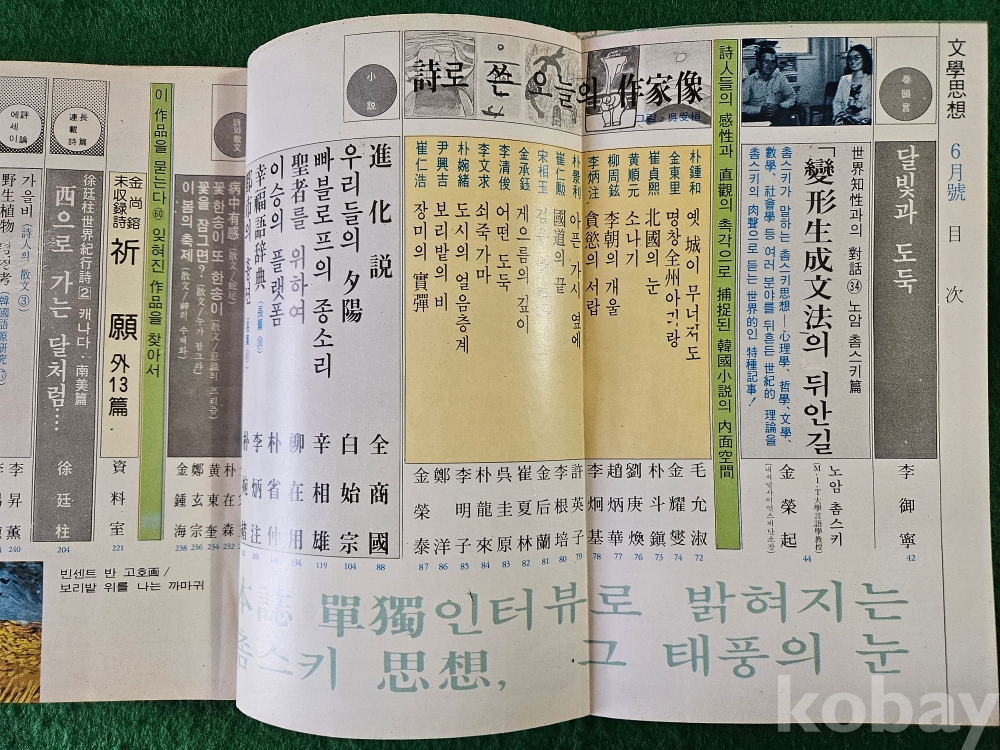 文學思想 6月號 目次
卷頭言
달빛과 도둑 李御寧 42
世界知性과의 對話 ㉞ 노암 촘스키篇
「變形生成文法」의 뒤안길
노암 촘스키 (M·I·T大學言語學敎授)
金榮起
44
촘스키가 말하는 촘스키思想―心理學、哲學、文學、
數學、社會學 등 여러 분야를 뒤흔든 世紀的 理論을
촘스키의 肉聲으로 듣는 世界的인 特種記事!
詩人들의 感性과 直觀의 촉각으로 捕捉된 韓國小說의 內面空間
詩로 쓴 오늘의 作家像
그림·吳受桓
朴鍾和 옛 城이 무너져도 毛允淑 72
金東里 명창全州아리랑 金耀燮 74
崔貞熙 北國의 눈 朴斗鎭 75
黃順元 소나기 劉庚煥 76
柳周鉉 李朝의 개울 趙炳華 77
李炳注 貪慾의 서랍 李炯基 78
朴景利 아픈 가시 옆에 許英子 79
崔仁勳 國道의 끝 李根培 80
宋相玉 金后蘭 81
金承鈺 게으름의 깊이 崔夏林 82
李淸俊 어떤 도둑 吳圭原 83
李文求 쇠죽가마 朴龍來 84
朴婉緖 도시의 얼음층계 李明子 85
尹興吉 보리밭의 비 鄭洋 86
崔仁浩 장미의 實彈 金榮泰 87
小說
進化說 全商國 88
우리들의 夕陽 白始宗 104
빠블로프의 종소리 辛相雄 119
聖者를 위하여 柳在用 134
이승의 플랫폼
幸福語辭典 李炳注
本誌 單獨인터뷰로 밝혀지는
촘스키 思想, 그 태풍의 눈
詩와 散文
病中有感
꽃 한송이 또 한송이 朴在森 232
꽃을 잠그면? 黃東奎 234
이 봄의 축제 鄭玄宗 236
金鍾海 238
이 作品을 묻는다 ㊿ 잊혀진 作品을 찾아서
金尚鎔 未收録詩 祈願 外13篇 資料室 221
長篇連載詩
徐廷柱世界紀行詩② 캐나다·南美篇
西으로 가는 달처럼… 徐廷柱 204
評論 에세이
가을비 (詩人의 散文③)
野生植物
李昇薰 240
빈센트 반 고호画/
보리밭 위를 나는 까마귀
kobay